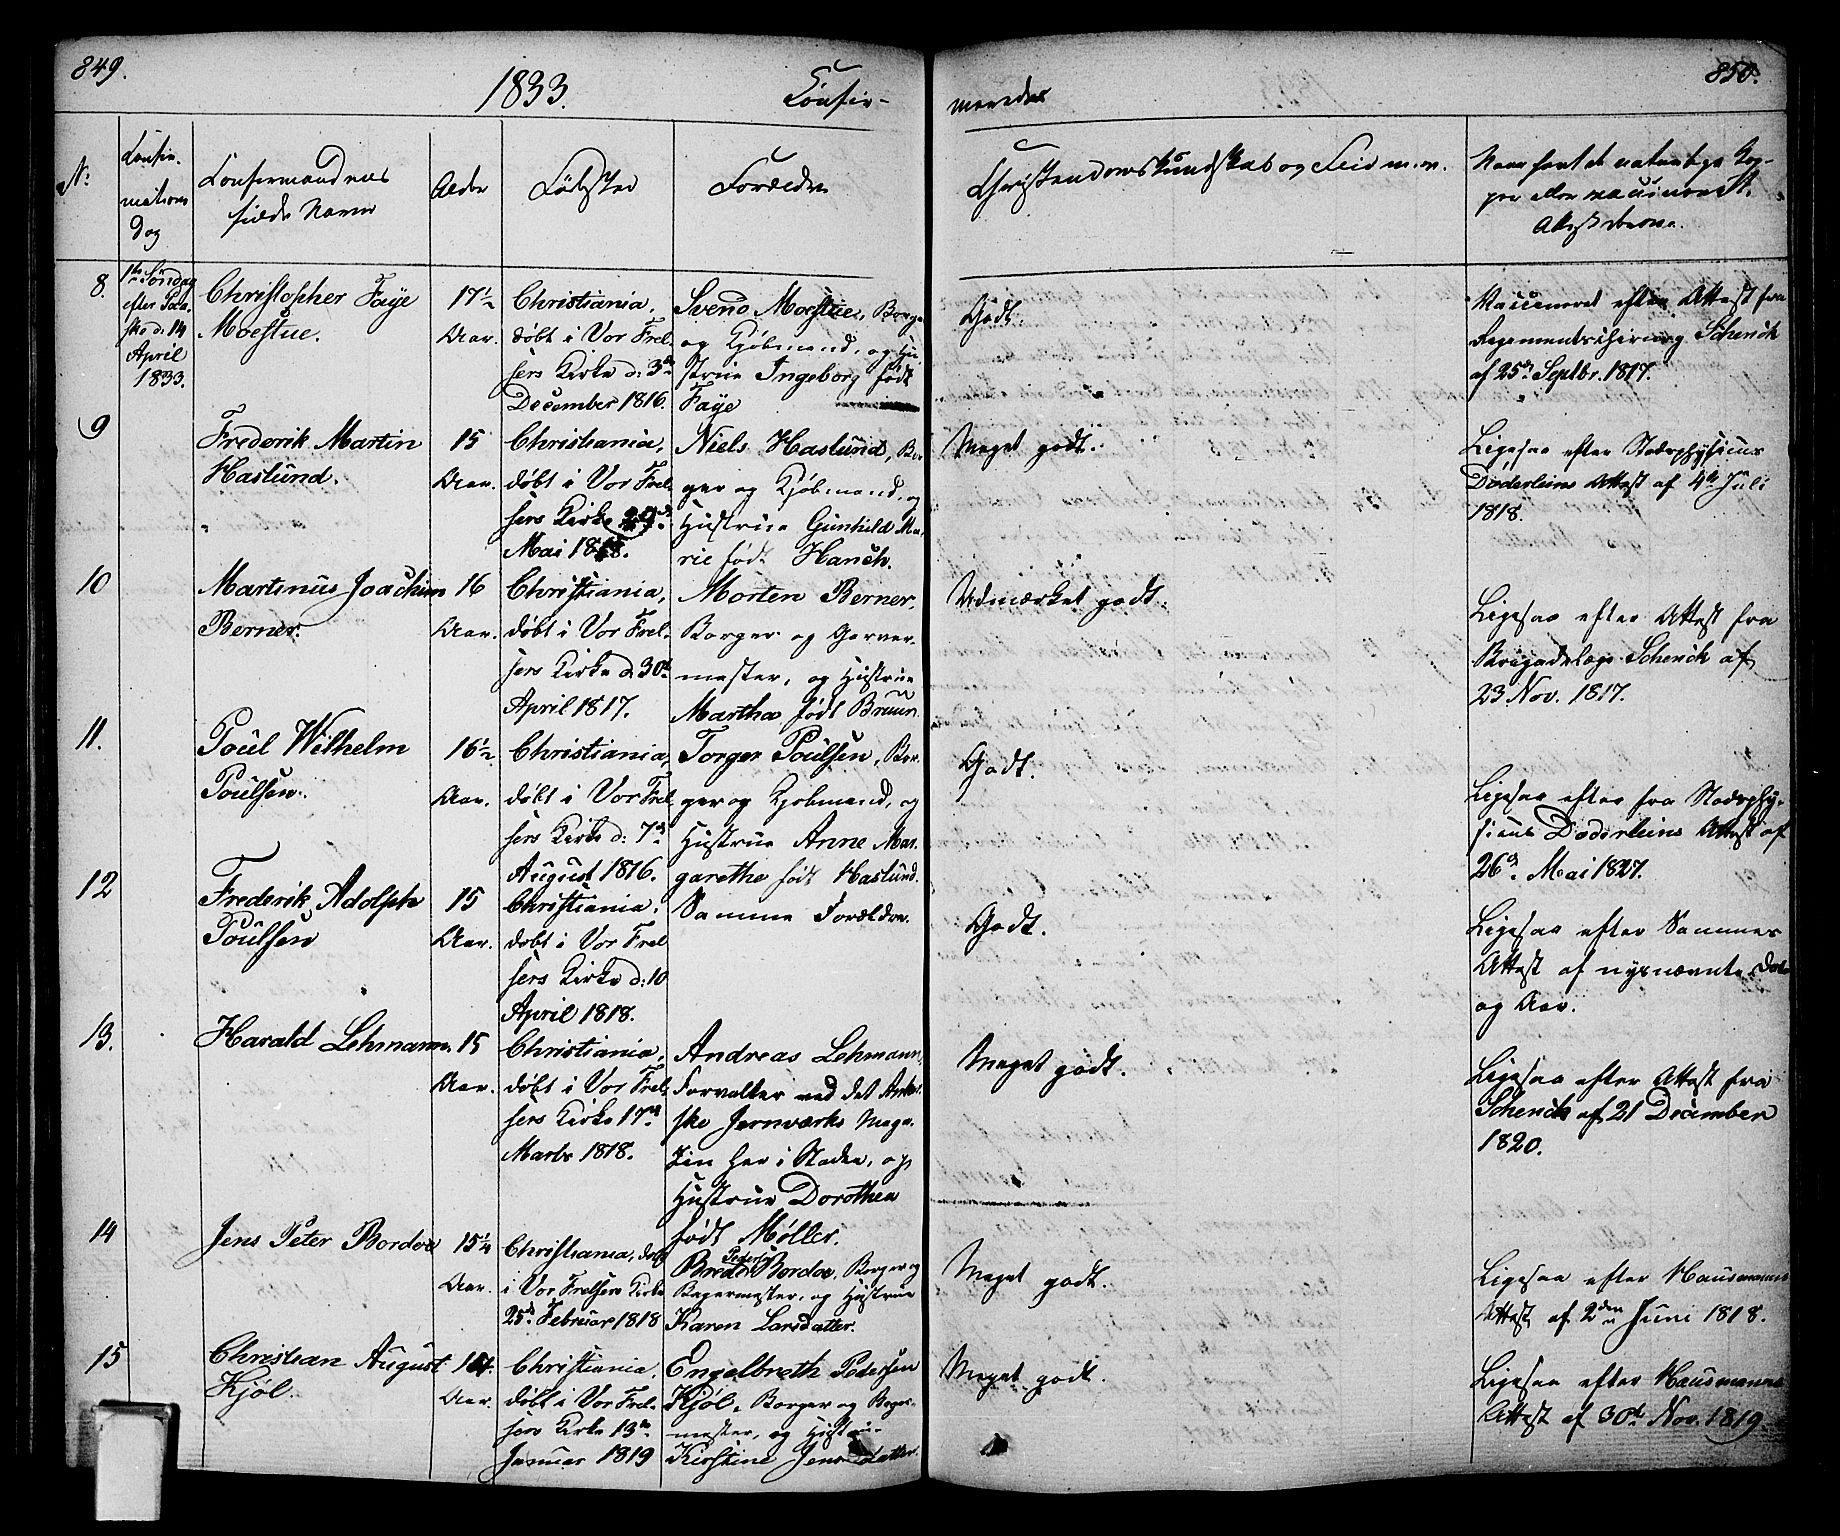 849.
1833.
Confir-
No
Confir-
mations
Dag
Confirmandens
fulde Navn
Alder
Fødested
Forældre
8.
1te Søndag
efter Paa-
ske d: 14
April
1833.
Christopher Faye
Moestue.
17½
Aar.
Christiania,
døbt i Vor Frel-
sers Kirke d: 3de
December 1816.
Svend Moestue, Borger
og Kjøbmand, og Hu-
strue Ingeborg født
Faye
9
Frederik Martin
Haslund.
15
Aar.
Christiania,
døbt i Vor Frel-
sers Kirke 29de
Mai 1818.
Niels Haslund, Bor-
ger og Kjøbmand, og
Hustrue Gunhild Ma-
rie født Hansch.
10
Martinus Joachim
Berner.
16
Aar.
Christiania,
døbt i Vor Frel-
sers Kirke d: 30te
April 1817.
Morten Berner,
Borger og Garver-
mester, og Hustrue
Martha født Bruun
11.
Poul Wilhelm
Poulsen.
16½
Aar.
Christiania,
døbt i Vor Frel-
sers Kirke d: 7de
August 1816.
Torger Poulsen, Bor-
ger og Kjøbmand, og
Hustrue Anne Mar-
garethe født Haslund.
12
Frederik Adolph
Poulsen
15
Aar.
Christiania,
døbt i Vor Frel-
sers Kirke d: 10
April 1818.
Samme Forældre.
13.
Harald Lehmann.
15
Aar.
Christiania,
døbt i Vor Frel-
sers Kirke 17de
Marts 1818.
Andreas Lehmann,
Forvalter ved det Anker-
ske Jernværks Maga-
zin her i Staden, og
Hustrue Dorothea
født Møller.
14
Jens Peter Bordoe
15¼
Aar.
Christiania, døbt
i Vor Frelsers Kirke
25de Februar 1818
Peders:
Brede Bordoe, Borger og
Bagermester, og Hustrue
Karen Larsdatter.
15
Christian August
Kjøl.
14.
Aar.
Christiania.
døbt i Vor Frel-
sers Kirke 13de
Januar 1819
Engelbreth Pedersen
Kjøl, Borger og Bager-
mester, og Hustrue
Kirstine Jensdatter.
850.
merede
Christendomskundskab og Flid m. m.
Naar havt de naturlige Kop-
per eller vaccinerede st.
Attesterne.
Godt.
Vaccineret efter Attest fra
Regimentschirurg Schenck
af 25de Septbr. 1817.
Meget godt.
Ligesaa efter Stadsphysicus
Døderleins Attest af 4de Juli
1818.
Udmærket godt.
Ligesaa efter Attest fra
Brigadelæge Schenck af
23 Nov. 1817.
Godt.
Ligesaa efter fra Stadsphy-
sicus Døderleins Attest af
26de Mai 1827.
Godt.
Ligesaa efter Sammes
Attest af nysnævnte Dato
og Aar.
Meget godt.
Ligesaa efter Attest fra
Schenck af 21 December
1820.
Meget godt.
Ligesaa efter Hausmanns
Attest af 2den Juni 1818.
Meget godt.
Ligesaa efter Hausmanns
Attest af 30te Nov. 1819